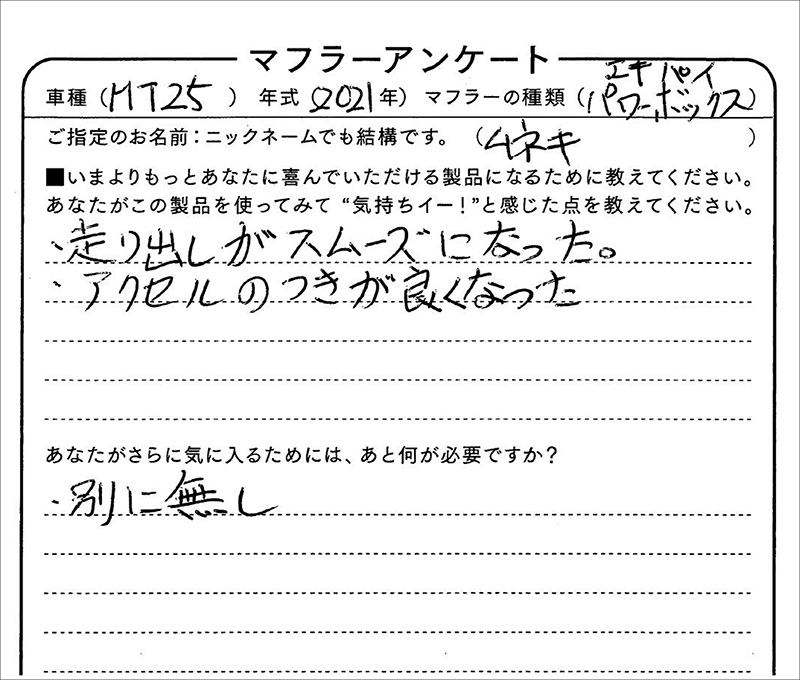 マフラーアンケート
車種（MT25）　年式（2021年）マフラーの種類（エキパイ パワーボックス）
ご指定のお名前：ニックネームでも結構です。（ムネキ）
■いまよりもっとあなたに喜んでいただける製品になるために教えてください。
あなたがこの製品を使ってみて“気持ちイー！”と感じた点を教えてください。
・走り出しがスムーズになった。
・アクセルのつきが良くなった
あなたがさらに気に入るためには、あと何が必要ですか？
・別に無し